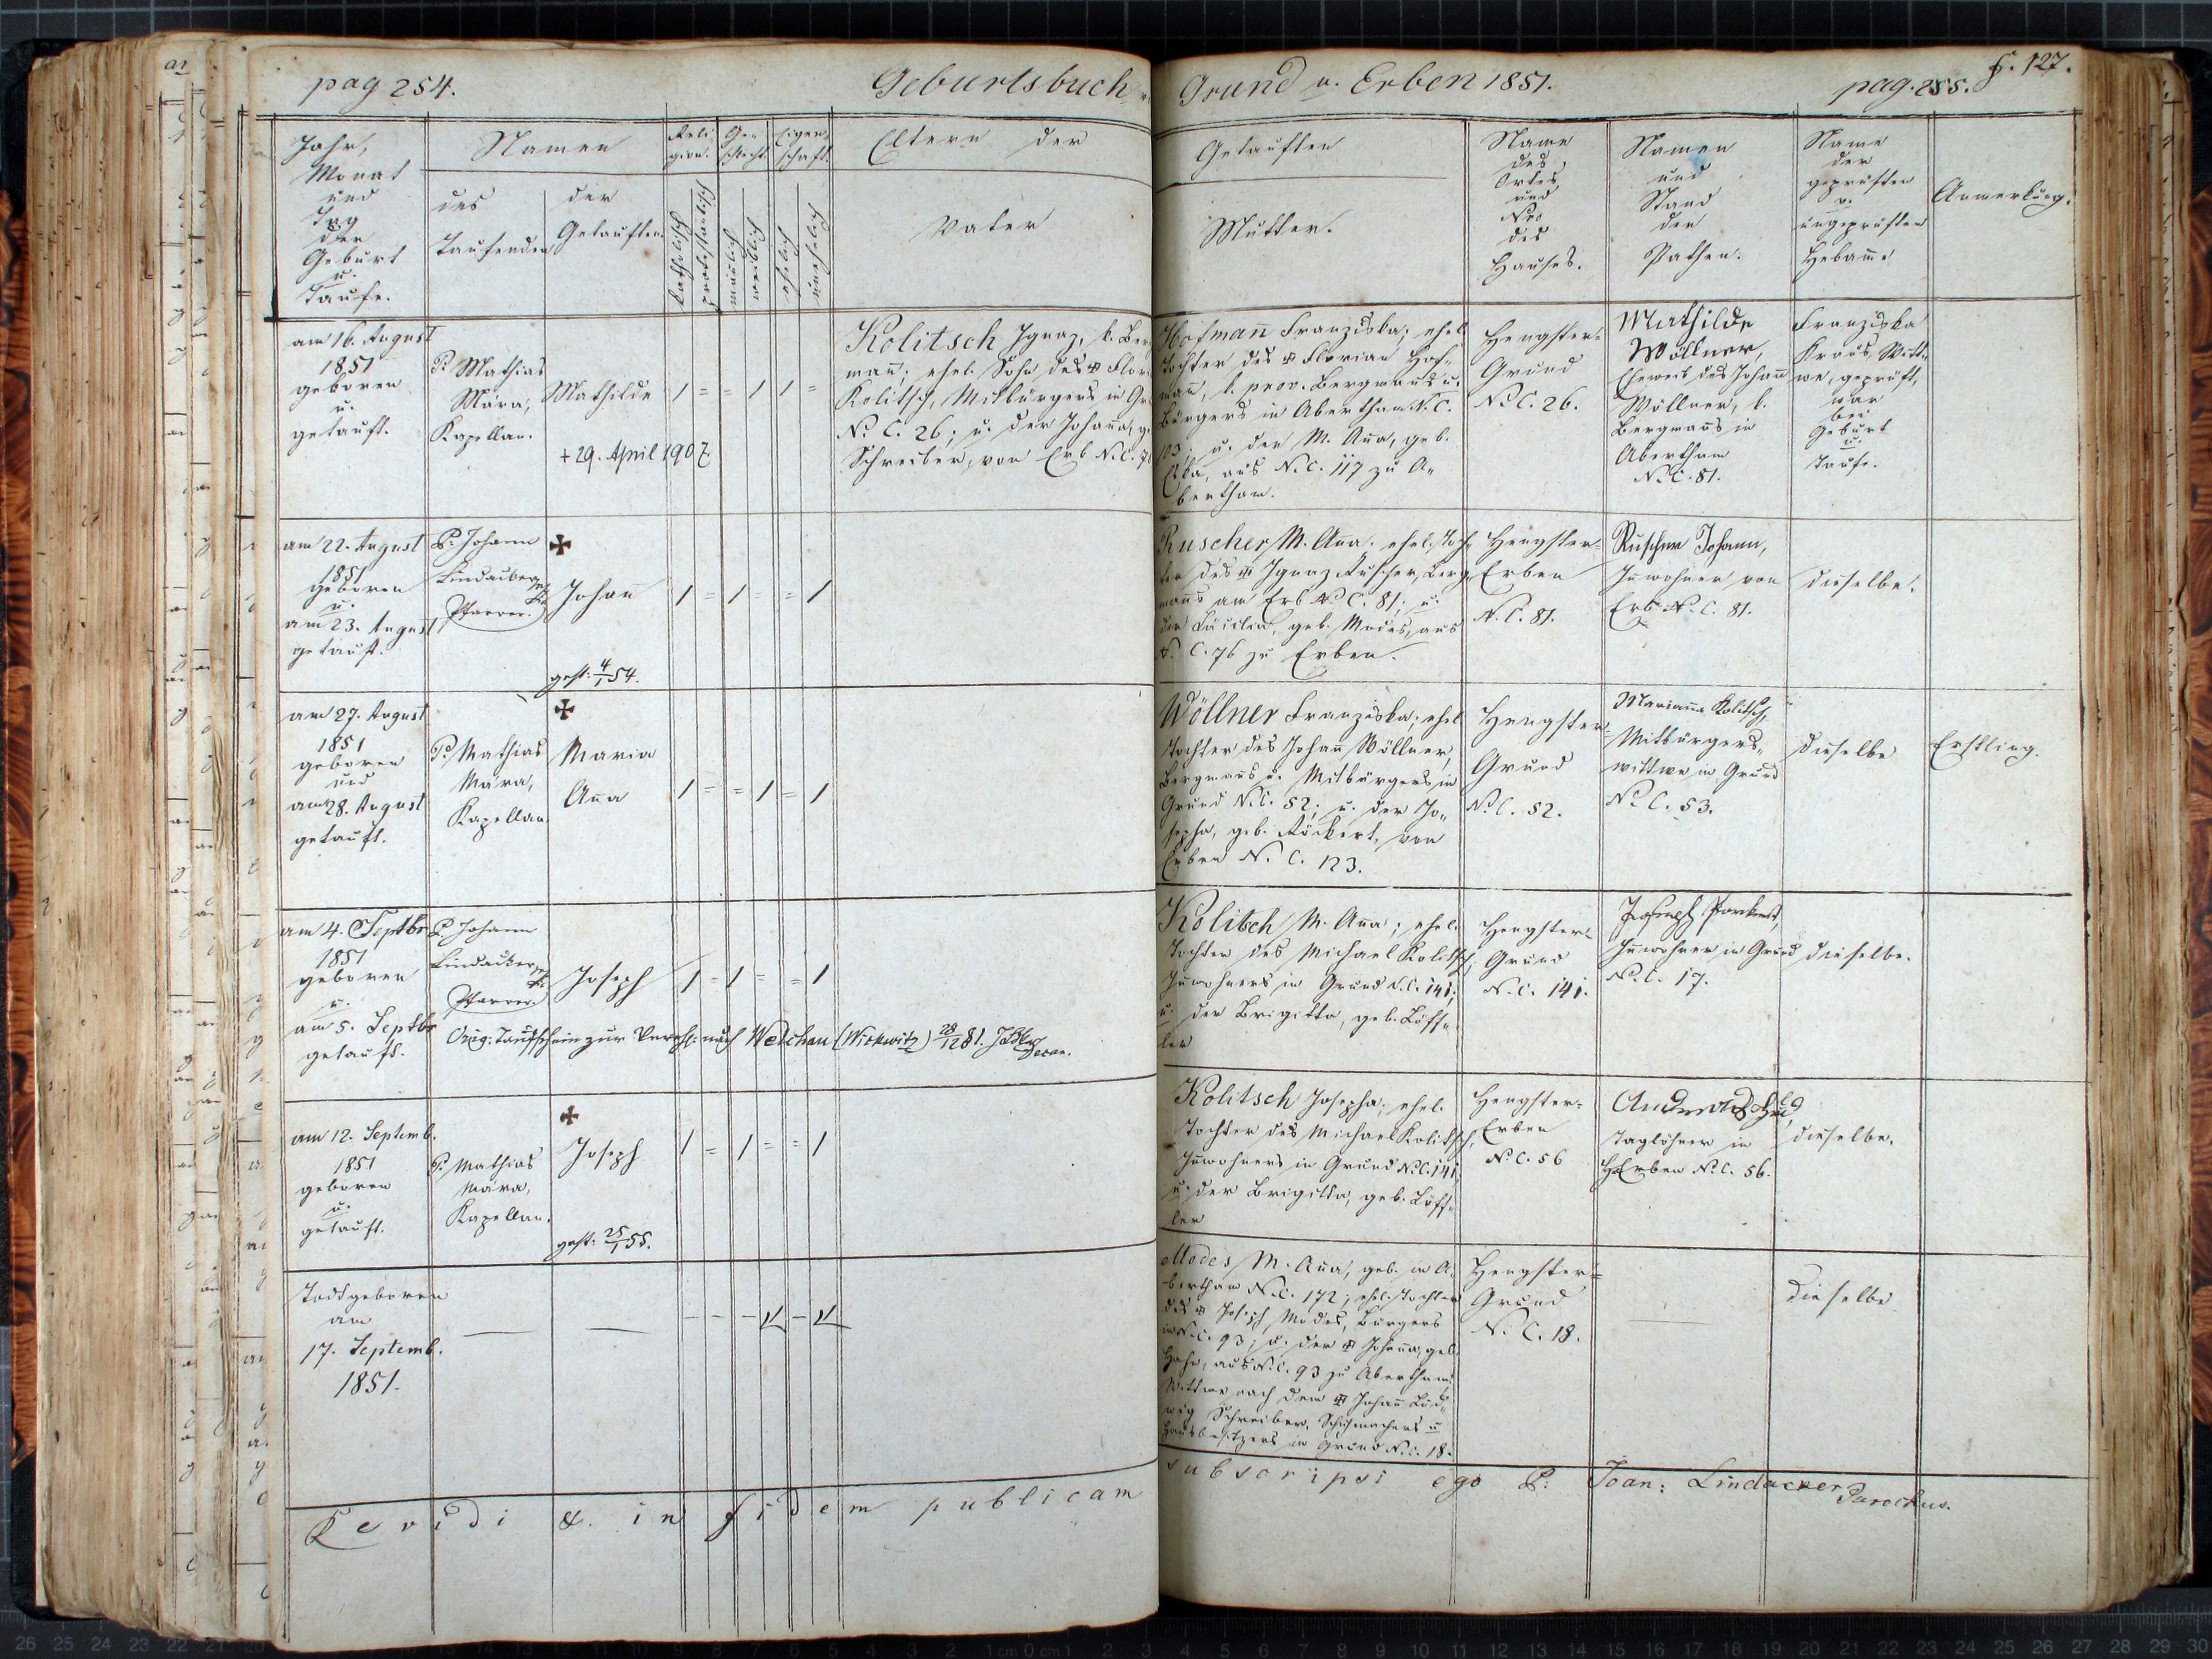 pag 254.
Geburtsbuch
Jahr,
Monat
und
Tag
der
Geburt
u.
Taufe.
Namen
des
Taufenden
der
Getauften
Reli-
gion.
Katholisch
protestantisch
Ge-
schlecht
mänlich
weiblich
Eigen-
schaft.
ehelich
unehelich
Eltern der
Vater
am 16. August
1851
geboren
u.
getauft.
P. Mathias
Mära,
Kapellan.
Mathilde
+ 29. April 1907.
1 = = 1 1 =
Kolitsch Ignaz, k. Berg
mañ; ehel. Sohn des Flor
Kolitsch, Mitbürgers in Gr
N. C. 26; u. der Johaña, g
Schreiber, von Erb N.C.
am 22. August
1851
geboren
u.
am 23. August
getauft.
P. Johann
Lindacker
Pfarrer.
Johañ
gest: 4/1 54.
1 = 1 = = 1
am 27. August
1851
geboren
und
am 28. August
getauft.
P. Mathias
Mära,
Kapellan.
Maria
Aña
1 = = 1 = 1
am 4. Septbr
1851
geboren
u.
am 5. Septbr
getauft.
P. Johann
Lindacker
Pfarrer.
Joseph
1 = 1 = = 1
Orig: Taufschein zur Verehl: nach Welchau (Wickwitz) 28/12 81.
Decan.
am 12. Septemb.
1851
geboren
u.
getauft.
P. Mathias
Mära,
Kapellan.
Joseph
gest: 25/1 55.
1 = 1 = = 1
Todtgeboren
am
17. Septemb.
1851.
Revidi & in fidem publicam
Grund u. Erben 1851.
pag. 255.
f. 127.
Getauften
Mutter.
Name
des
Ortes
und
Nro
des
Hauses.
Namen
und
Stand
der
Pathen.
Name
der
geprüften
o.
ungeprüften
Hebame
Anmerkung.
Hofmañ Franziska; ehel.
Tochter des Florian Hof-
mañ, k. prov. Bergmañs u.
Bürgers in Abertham N. C.
103; u. der M. Aña, geb.
aus N. C. 117 zu A-
bertham.
Hengster-
Grund
N. C. 26.
Mathilde
Wöllner,
Eheweib des Johañ
Wöllner, k.
Bergmañs in
Abertham
N. C. 81.
Franziska
Kraus, Witt-
we, geprüft,
war
bei
Geburt
u.
Taufe.
Ruscher M. Aña. ehel. Toch-
ter des Ignaz Ruscher, Berg-
mañs am Erb N. C. 81; u.
der Cäcilia, geb. Modes, aus
N. C. 76 zu Erben.
Hengster-
Erben
N. C. 81.
Ruscher Johann,
Inwohner von
Erb N. C. 81.
dieselbe.
Wöllner Franziska; ehel.
Tochter des Johañ Wöllner,
Bergmañs u. Mitbürgers in
Grund N. C. 52; u. der Jo-
sepha, geb. Röckert, von
Erben N. C. 123.
Hengster-
Grund
N. C. 52.
Mariaña Kolitsch,
Mitbürgers-
wittwe in Grund
N. C. 53.
dieselbe
Erstling.
Kolitsch M. Aña; ehel.
Tochter des Michael Kolitsch,
Inwohners in Grund N.C. 141;
u. der Brigitta, geb. Löff-
ler
Hengster-
Grund
N. C. 141.
Joseph
Inwohner in Grund
N. C. 17.
dieselbe.
Kolitsch Josepha; ehel.
Tochter des Michael Kolitsch,
Inwohners in Grund N.C. 141,
u. der Brigitta, geb. Löff-
ler
Hengster-
Erben
N. C. 56
Taglöhner in
HErben N. C. 56.
dieselbe.
Modes M. Aña, geb. in A-
bertham N. C. 172; ehel. Tochter
des Joseph Modes, Bürgers
in N. C. 93; u. der Johaña, geb.
aus N. C. 93 zu Abertham.
Wittwe nach dem Johañ Lud-
wig Schreiber, Schuhmachers u.
Hausbesitzers in Grund N. C. 18.
Hengster-
Grund
N. C. 18.
dieselbe
subscripsi ego P: Joan: Lindacker
Parochus.